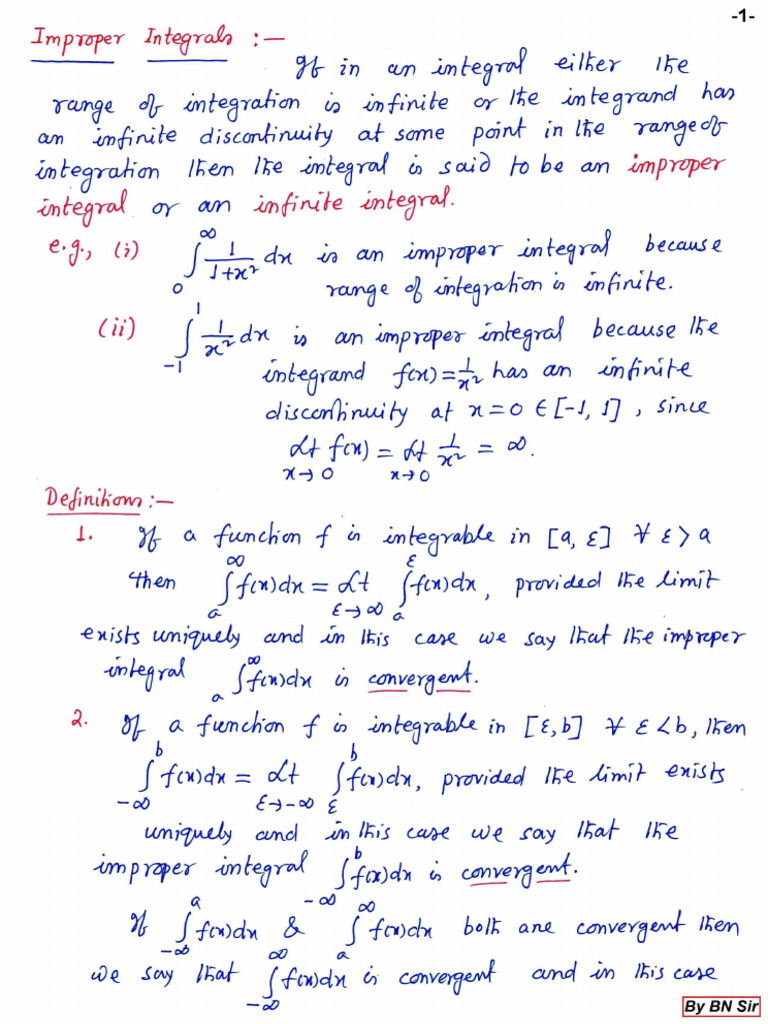 -1-
Improper Integrals :—
If in an integral either the
range of integration is infinite or the integrand has
an infinite discontinuity at some point in the range of
integration then the integral is said to be an improper
integral or an infinite integral.
e.g., (i) ∫₀^∞ 1/(1+x²) dx is an improper integral because
range of integration is infinite.
(ii) ∫₋₁^1 1/x² dx is an improper integral because the
integrand f(x) = 1/x² has an infinite
discontinuity at x=0 ∈ [-1, 1] , since
Lt_{x→0} f(x) = Lt_{x→0} 1/x² = ∞.
Definitions :—
1. If a function f is integrable in [a, ε] ∀ ε > a
then ∫_a^∞ f(x)dx = Lt_{ε→∞} ∫_a^ε f(x)dx, provided the limit
exists uniquely and in this case we say that the improper
integral ∫_a^∞ f(x)dx is convergent.
2. If a function f is integrable in [ε, b] ∀ ε < b, then
∫_{-∞}^b f(x)dx = Lt_{ε→-∞} ∫_ε^b f(x)dx, provided the limit exists
uniquely and in this case we say that the
improper integral ∫_{-∞}^b f(x)dx is convergent.
If ∫_{-∞}^a f(x)dx & ∫_a^∞ f(x)dx both are convergent then
we say that ∫_{-∞}^∞ f(x)dx is convergent and in this case
By BN Sir